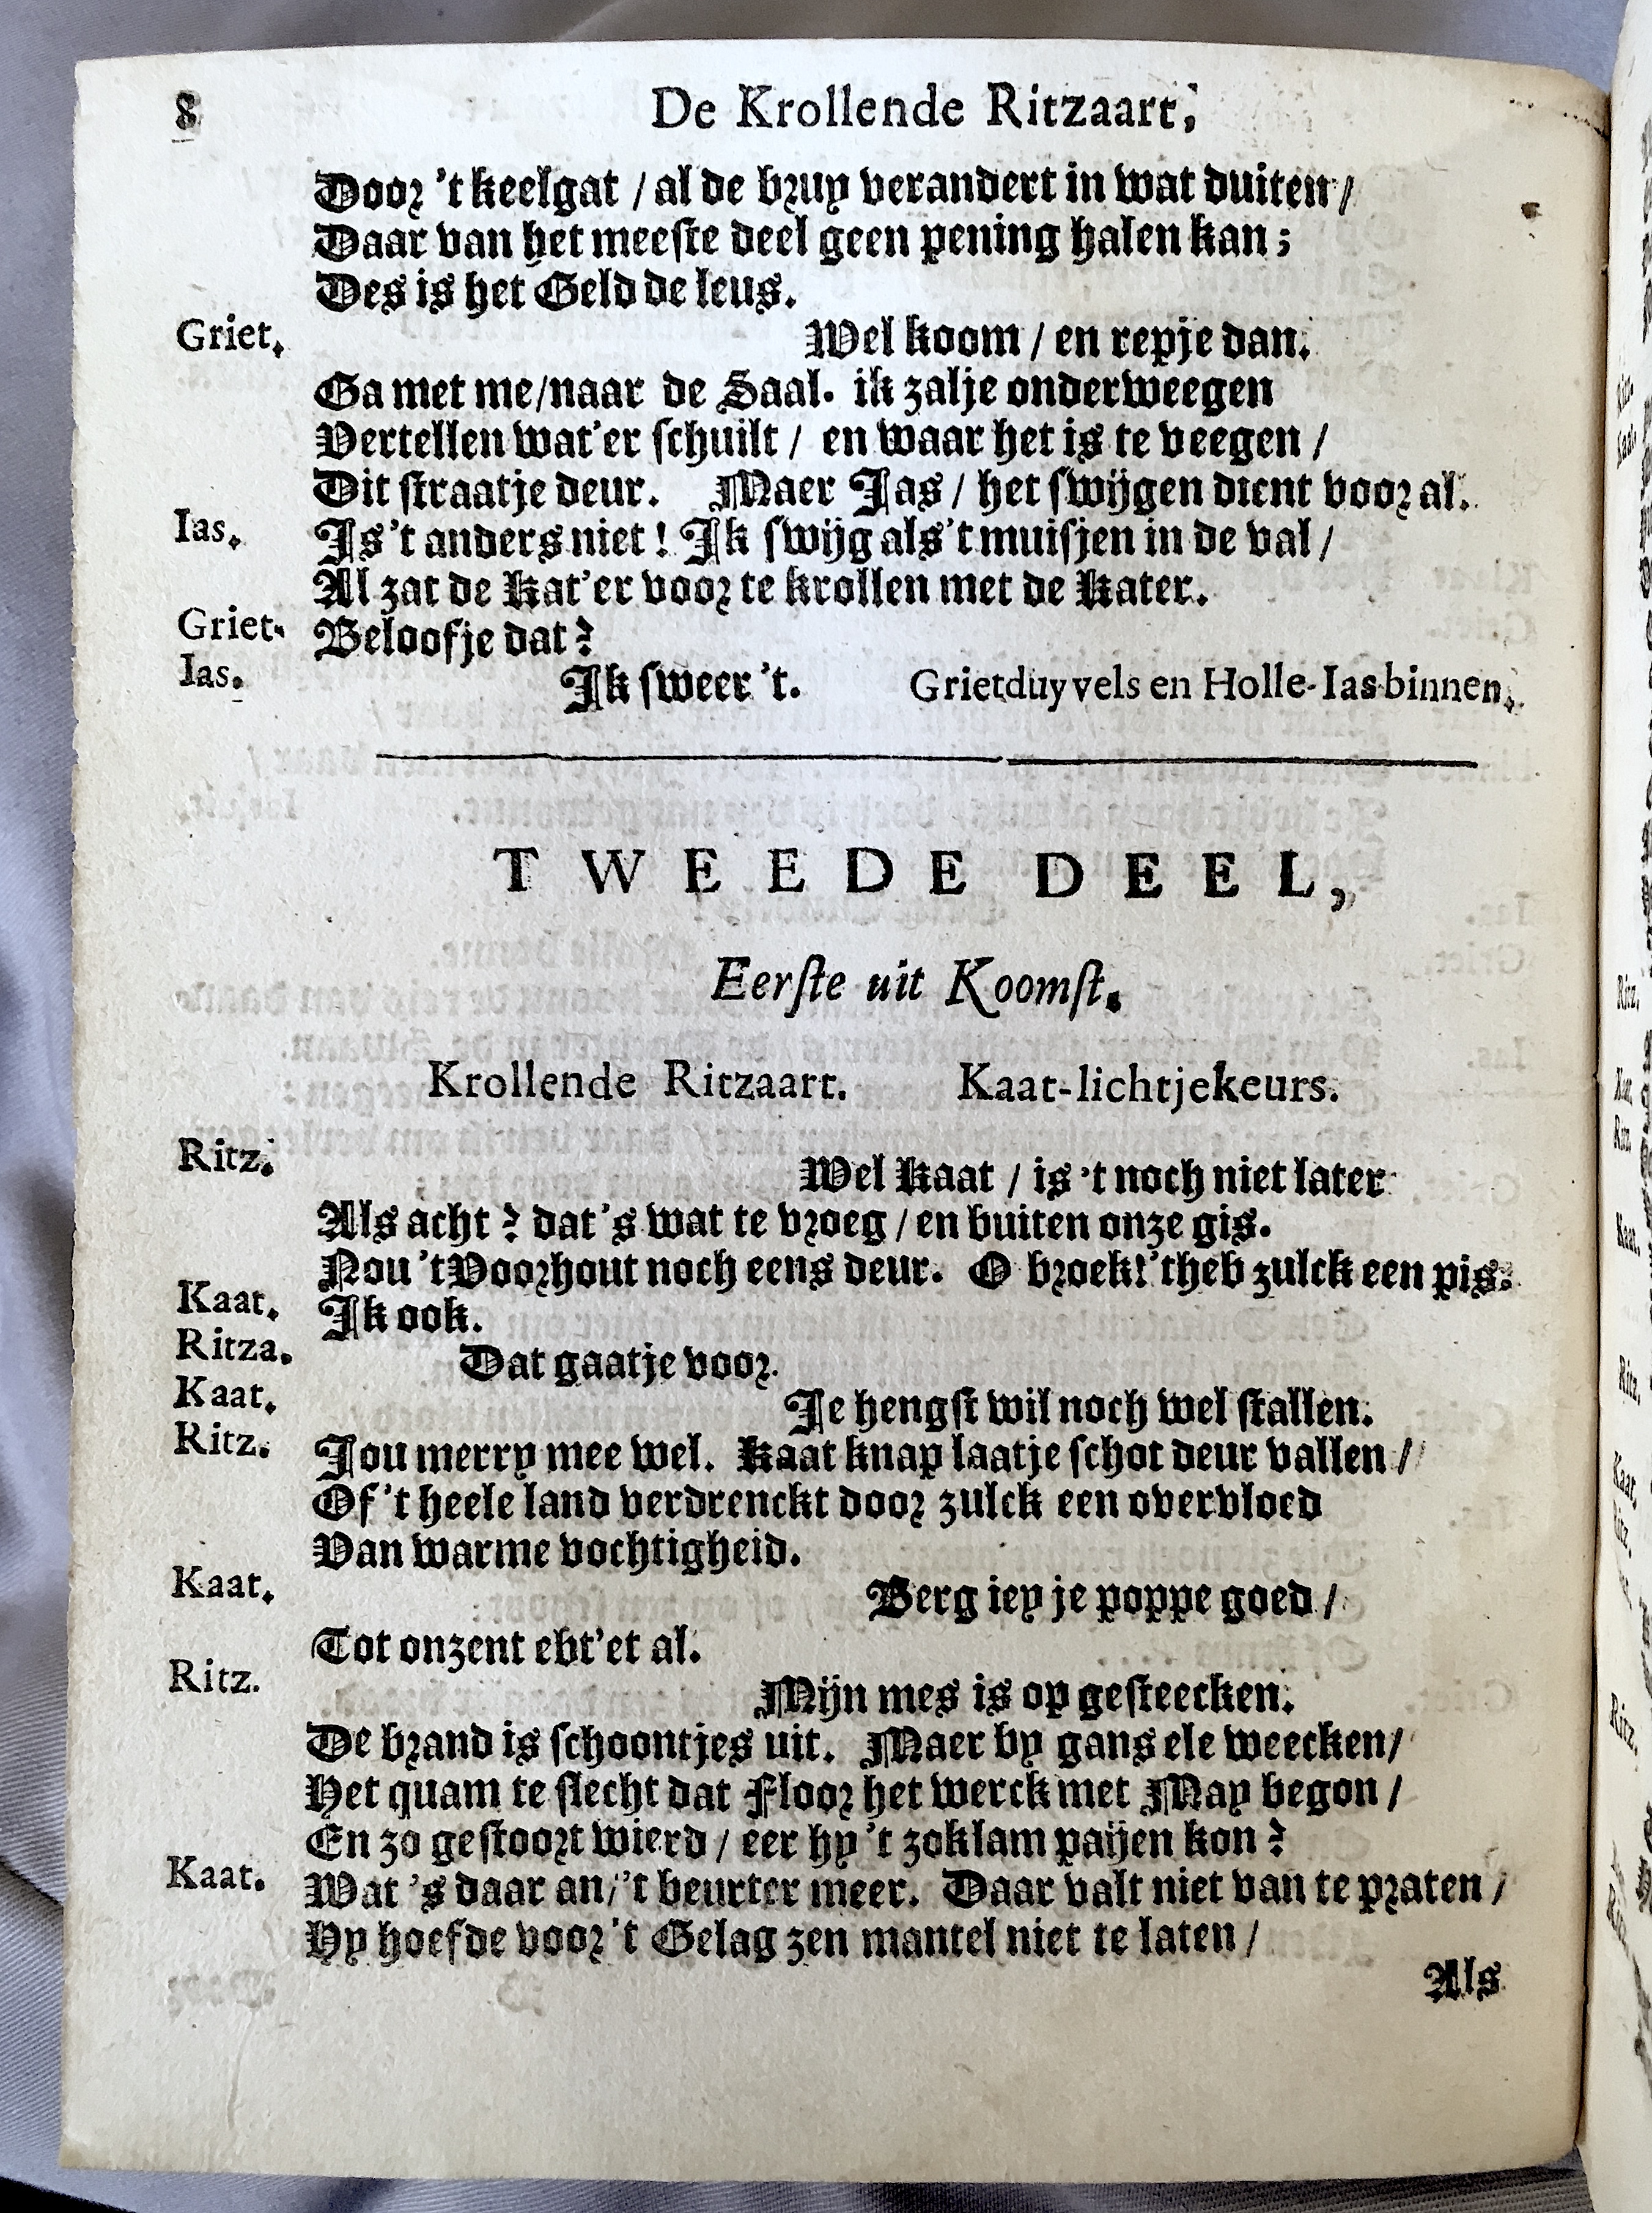 8 De Krollende Ritzaart,
Door 't keelgat / al de bruy verandert in wat duiten /
Daar van het meeste deel geen pening halen kan ;
Des is het Geld de leus.
Griet. Wel koom / en repje dan.
Ga met me/naar de Saal. ik zalje onderweegen
Vertellen wat'er schuilt / en waar het is te veegen /
Dit straatje deur. Maer Jas / het swijgen dient voor al.
Ias. Is 't anders niet ! Ik swijg als 't muisjen in de val /
Al zat de Kat'er voor te krollen met de Kater.
Griet. Beloofje dat ?
Ias. Ik sweer 't. Grietduyvels en Holle-Ias binnen.
TWEEDE DEEL,
Eerste uit Koomst.
Krollende Ritzaart. Kaat-lichtjekeurs.
Ritz. Wel Kaat / is 't noch niet later
Als acht ? dat 's wat te vroeg / en buiten onze gis.
Nou 't Voorhout noch eens deur. O broek! 'theb zulck een pis.
Kaat. Ik ook.
Ritza. Dat gaatje voor.
Kaat. Je hengst wil noch wel stallen.
Ritz. Jou merry mee wel. Kaat knap laatje schot deur vallen /
Of 't heele land verdrenckt door zulck een overvloed
Van warme vochtigheid.
Kaat. Berg iey je poppe goed /
Tot onzent ebt'et al.
Ritz. Mijn mes is op gesteecken.
De brand is schoontjes uit. Maer by gans ele weecken/
Het quam te slecht dat Floor het werck met May begon /
En zo gestoort wierd / eer hy 't zoklam paijen kon ?
Kaat. Wat 's daar an/'t beurter meer. Daar valt niet van te praten /
Hy hoefde voor 't Gelag zen mantel niet te laten /
Als